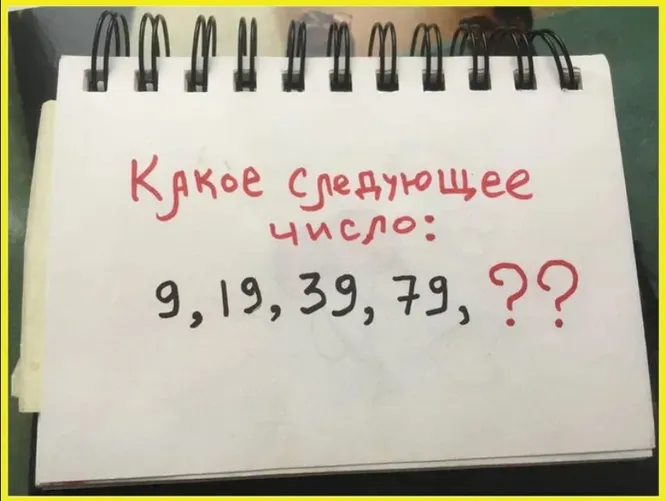 Какое следующее
число:
9, 19, 39, 79, ??